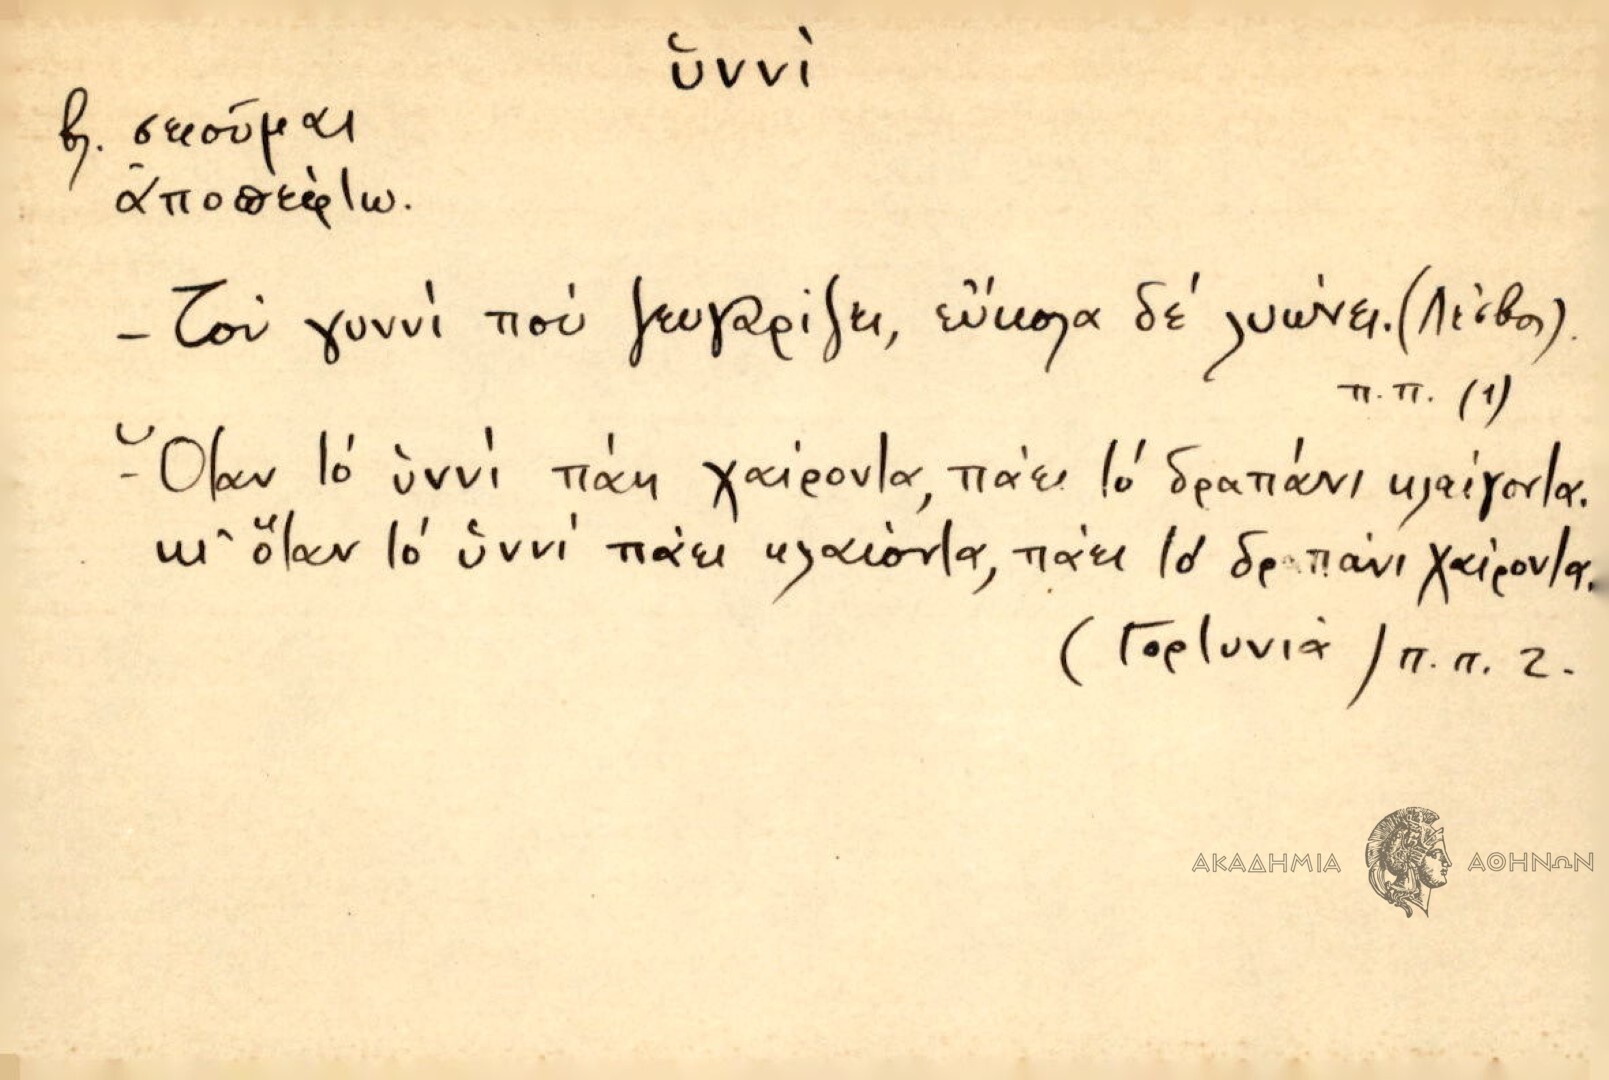 ὑννὶ
βλ. σκοῦμαι
ἀποπέφτω.
- Τοὺ γυννὶ ποὺ ζευγαρίζει, εὔκολα δὲ λυώνει. (Λέσβος).
π.π. (1)
- Ὅταν τὸ ὑννὶ πάη χαίροντα, πάει τὸ δραπάνι κλαίγοντα.
κι ὅταν τὸ ὑννὶ πάει κλαιόντα, πάει τὸ δραπάνι χαίροντα.
(Γορτυνία) π.π. 2.
ΑΚΑΔΗΜΙΑ ΑΘΗΝΩΝ